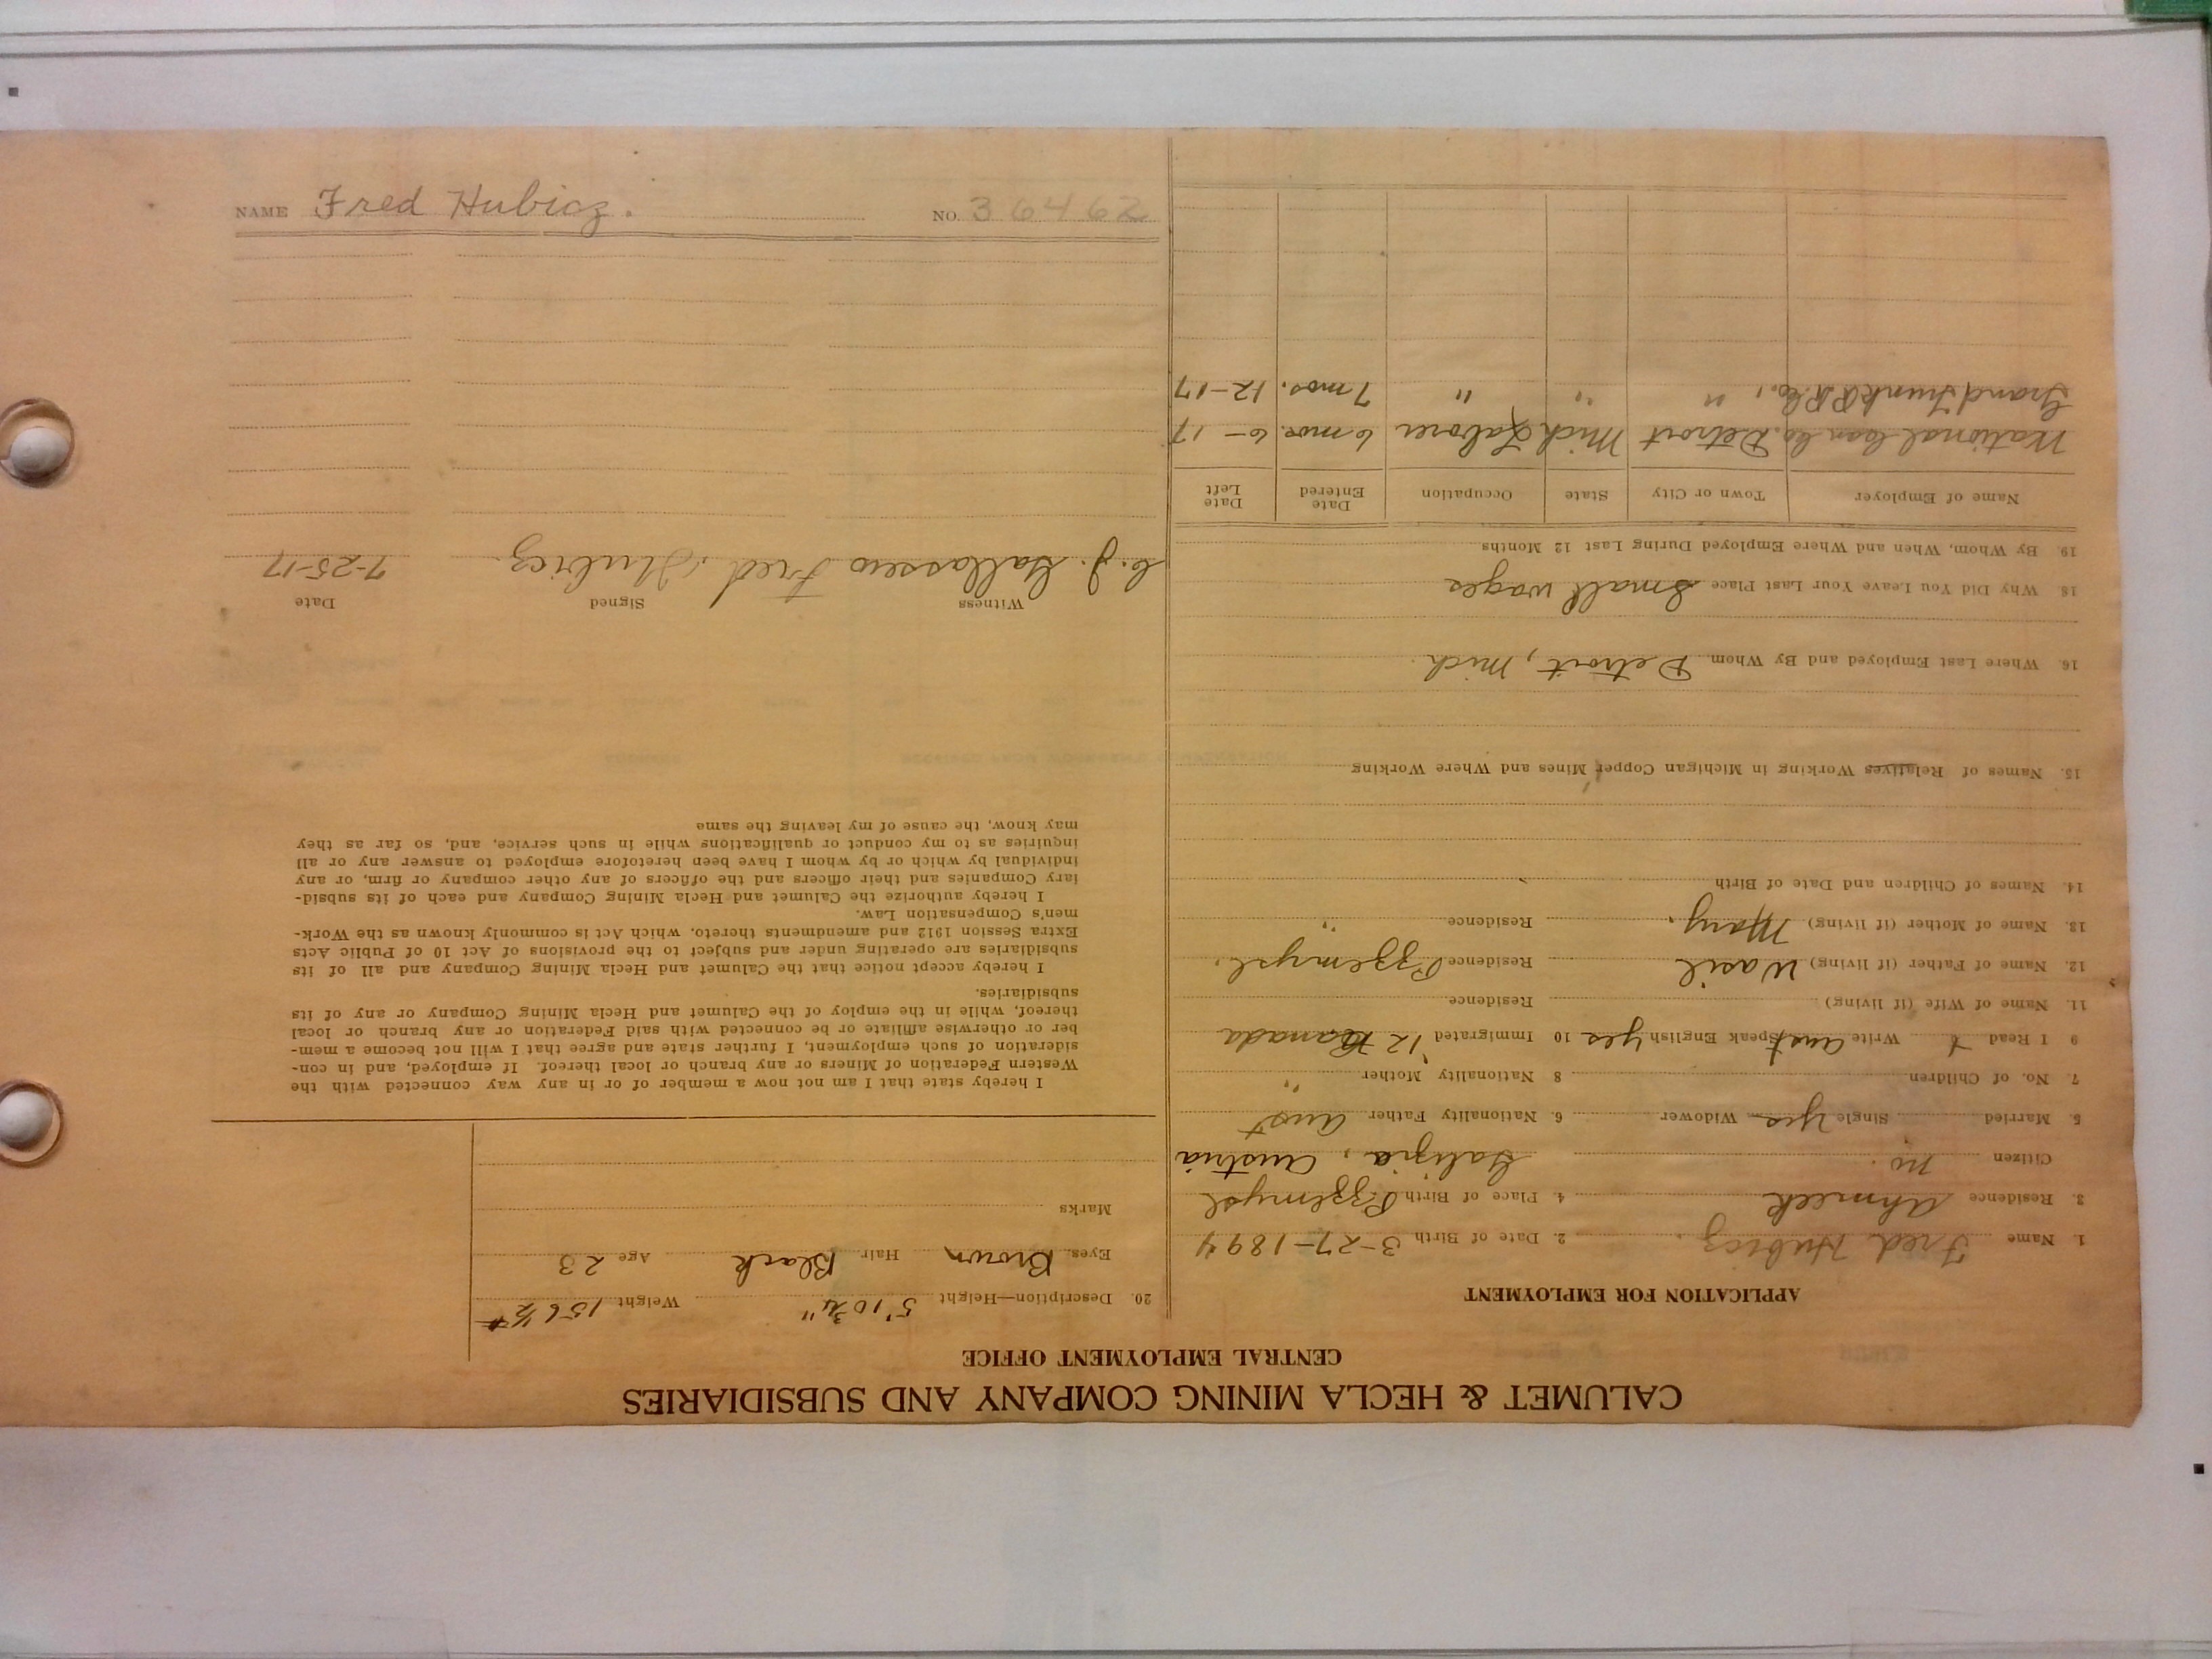 CALUMET & HECLA MINING COMPANY AND SUBSIDIARIES
CENTRAL EMPLOYMENT OFFICE
APPLICATION FOR EMPLOYMENT
1. Name Fred Hubicz. 2. Date of Birth 3-27-1894
3. Residence Ahmeek 4. Place of Birth Pzzemysl
Citizen no. Galizia, Austria
5. Married Single Yes Widower 6. Nationality Father Aust
7. No. of Children 8 Nationality Mother "
9 I Read & Write Aust Speak English yes 10 Immigrated '12 Canada
11. Name of Wife (if living) Residence
12. Name of Father (if living) Wasil Residence Pzzemysl.
13. Name of Mother (if living) Mary. Residence "
14. Names of Children and Date of Birth
15. Names of Relatives Working in Michigan Copper Mines and Where Working
16. Where Last Employed and By Whom Detroit, Mich.
18 Why Did You Leave Your Last Place Small wages
19. By Whom, When and Where Employed During Last 12 Months
Name of Employer Town or City State Occupation Date Entered Date Left
National Can Co. Detroit Mich Laborer 6 mos. 6-17
Grand Trunk R R Co., " " " 7 mos. 12-17
20. Description—Height 5'10¾" Weight 156½#
Eyes Brown Hair Black Age 23
Marks
I hereby state that I am not now a member of or in any way connected with the
Western Federation of Miners or any branch or local thereof. If employed, and in con-
sideration of such employment, I further state and agree that I will not become a mem-
ber or otherwise affiliate or be connected with said Federation or any branch or local
thereof, while in the employ of the Calumet and Hecla Mining Company or any of its
subsidiaries.
I hereby accept notice that the Calumet and Hecla Mining Company and all of its
subsidiaries are operating under and subject to the provisions of Act 10 of Public Acts
Extra Session 1912 and amendments thereto, which Act is commonly known as the Work-
men's Compensation Law.
I hereby authorize the Calumet and Hecla Mining Company and each of its subsid-
iary Companies and their officers and the officers of any other company or firm, or any
individual by which or by whom I have been heretofore employed to answer any or all
inquiries as to my conduct or qualifications while in such service, and, so far as they
may know, the cause of my leaving the same
Witness Signed Date
C. J. Fred Hubicz. 7-25-17
NAME Fred Hubicz. NO. 36462